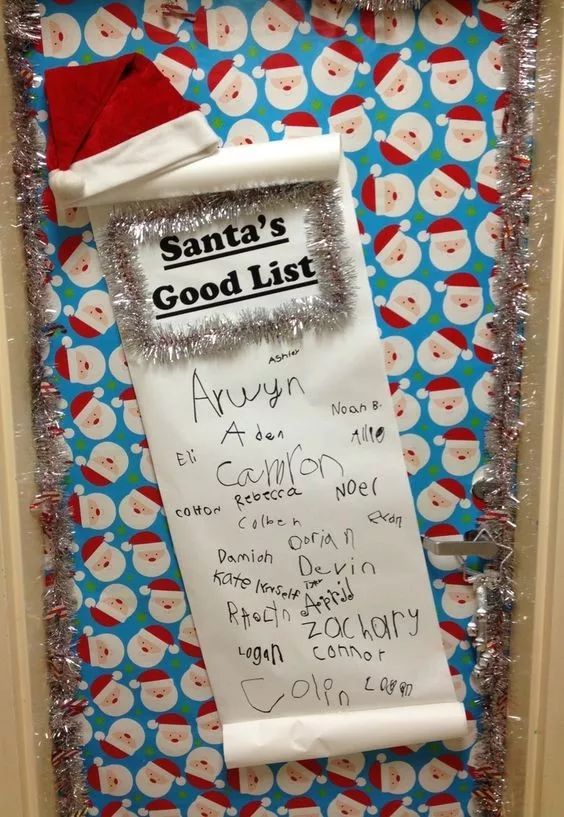 Santa's
Good List
Ashley
Arwyn
Noah B.
Aden
Allie
Eli
Camron
Colton Rebecca Noel
Colben
Evan
Dorian
Damian Devin
Kate
Zachary
Logan Connor
Colin Logan